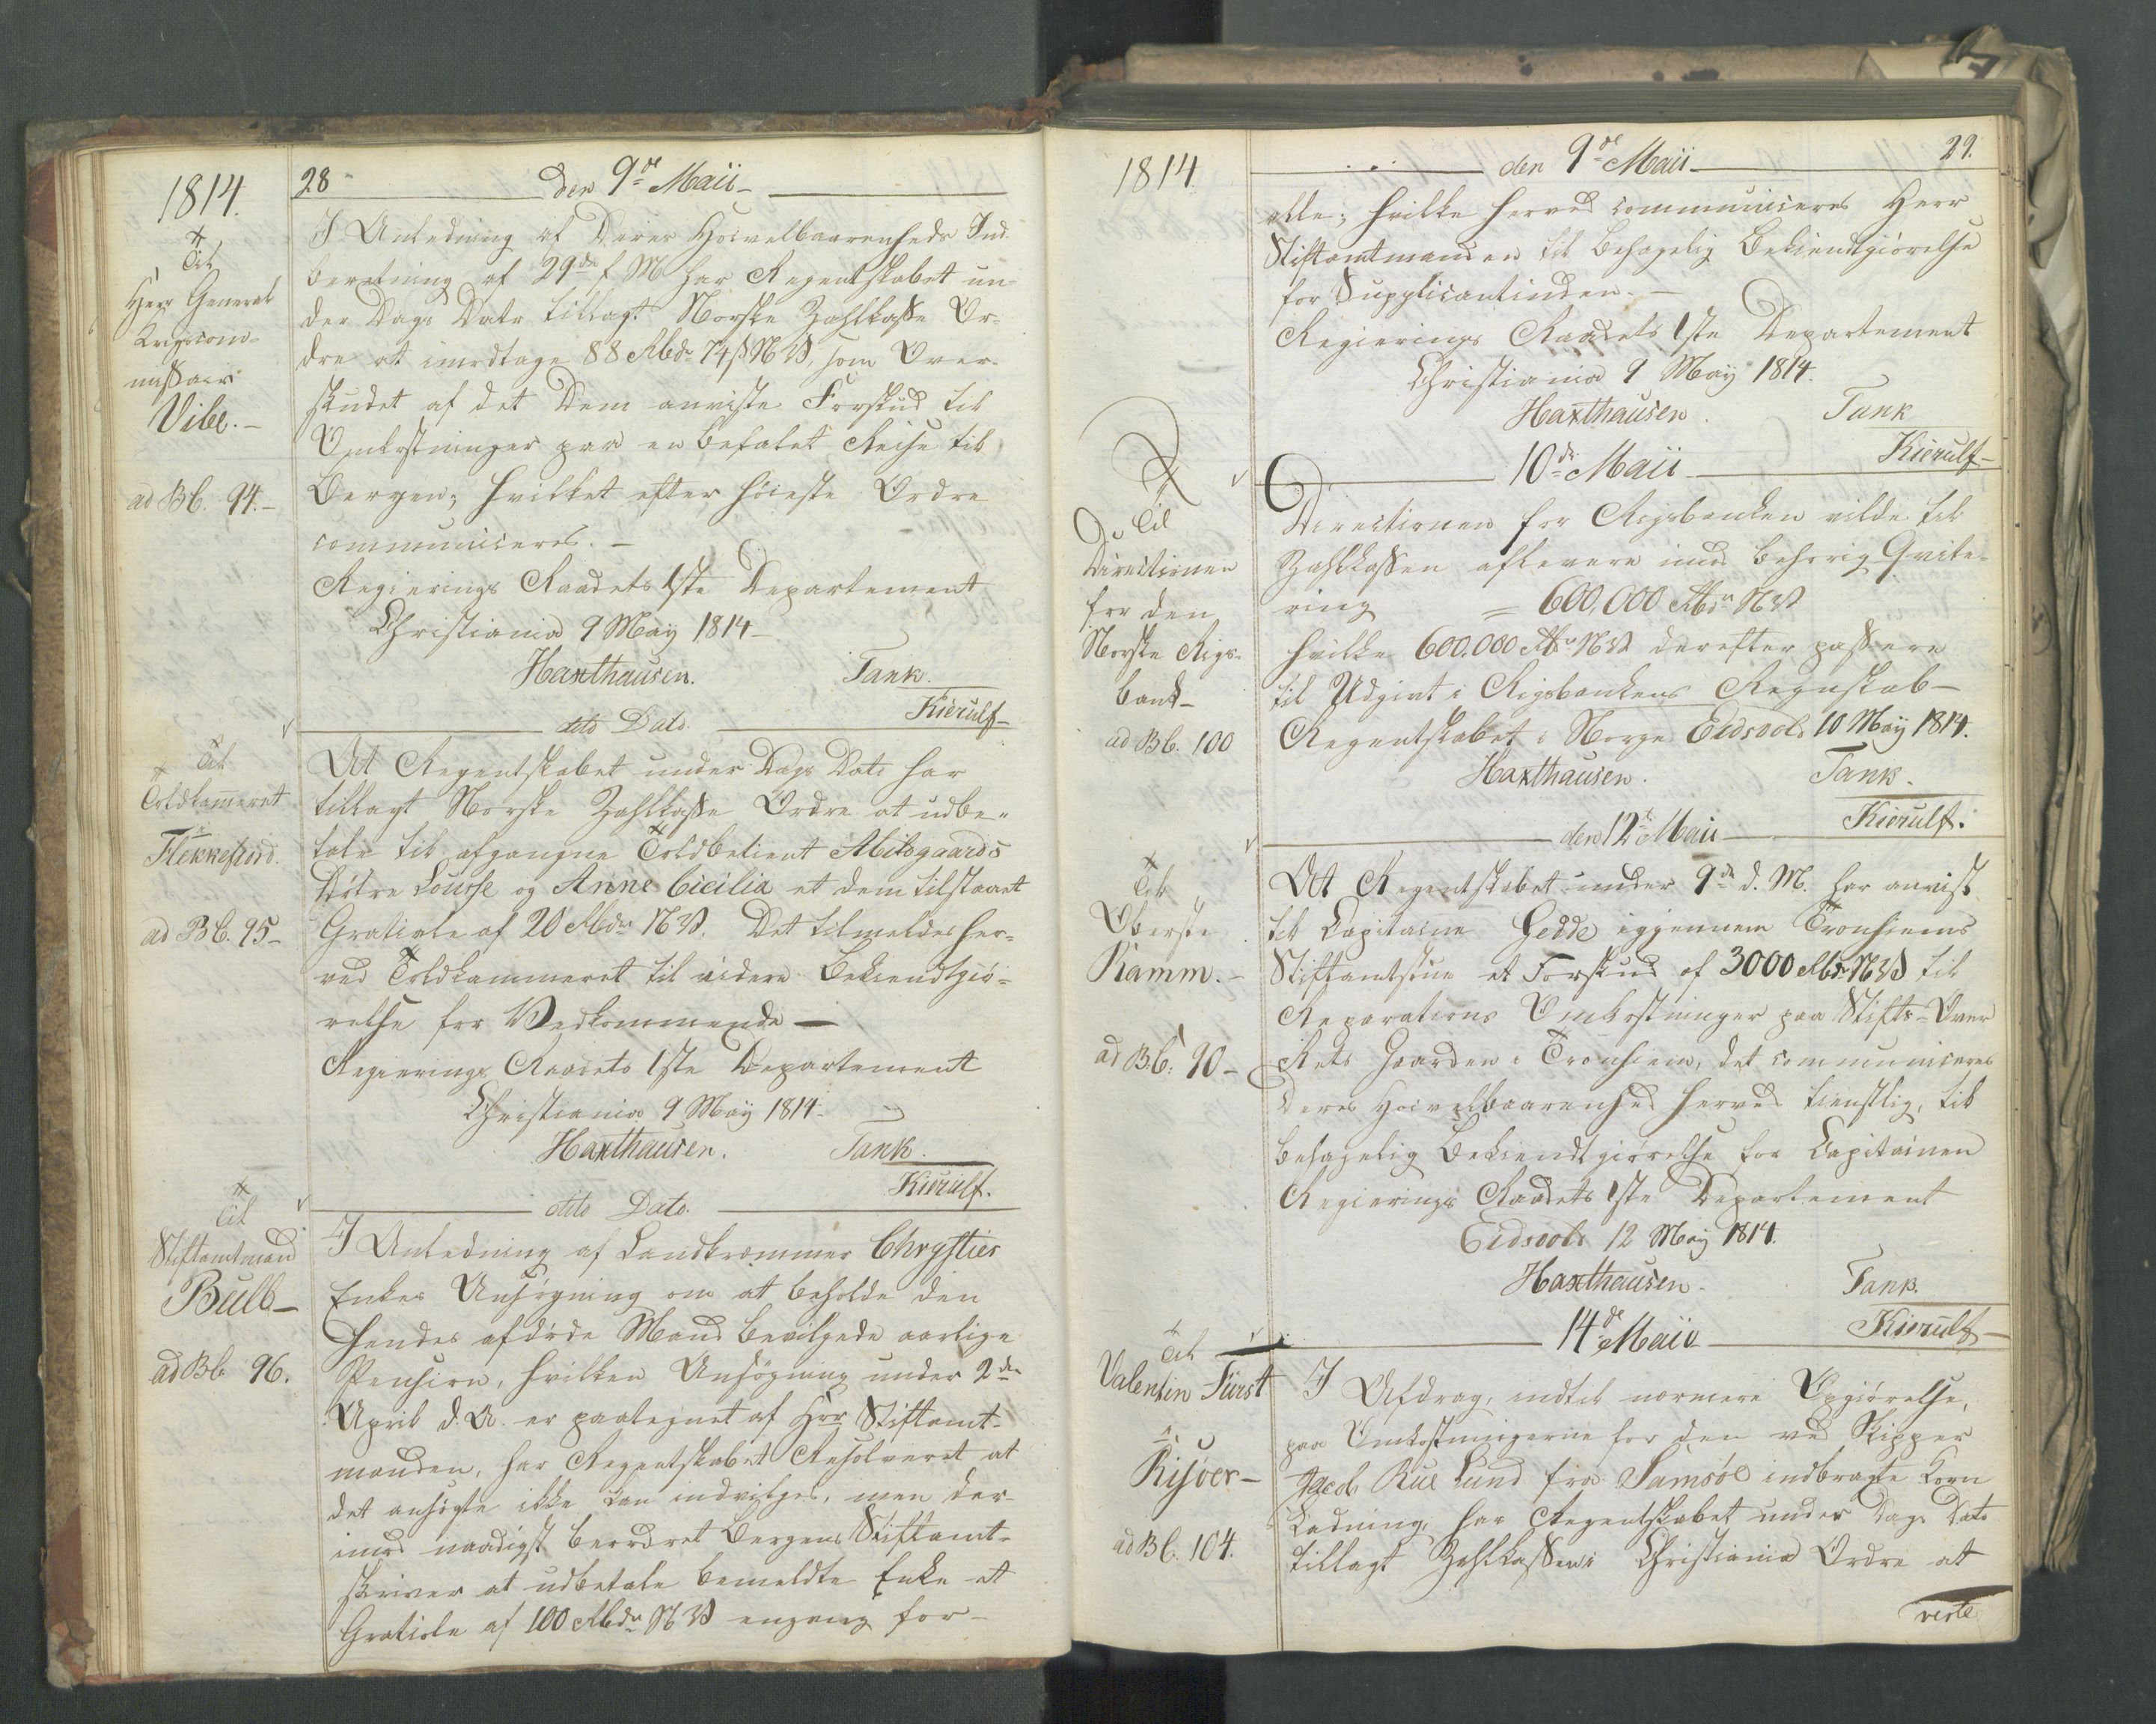 1814.
28
den 9de Maii
Til
Herr General
Krigscom-
missair
Vibe.
ad Bb. 94.
I Anledning af Deres Høivelbaarenheds Ind-
beretning af 29de f. M. har Regentskabet un-
der Dags Dato tillagt Norske Zahlkasse Or-
dre at imodtage 88 Rbdr 74 ß NV, som Over-
skudet af det Dem anviste Forskud til
Omkostninger paa en befalet Reise til
Bergen; hvilket efter høieste Ordre
communiceres.
Regierings Raadets 1ste Departement
Christiania 9 May 1814
Haxthausen. Tank.
Kierulf
dito Dato.
Til
Toldkammeret
i
Flekkefiord.
ad Bb. 95
At Regentskabet under Dags Dato har
tillagt Norske Zahlkasse Ordre at udbe-
tale til afgangne Toldbetient Abilsgaards
Døtre Lovise og Anne Cicilia et dem tilstaaet
Gratiale af 20 Rbdr NV. Det tilmeldes her-
ved Toldkammeret til videre Bekiendtgiø-
relse for Vedkommende
Regierings Raadets 1ste Departement
Christiania 9 May 1814
Haxthausen. Tank.
Kierulf.
dito Dato.
Til
Stiftamtmand
Bull
ad Bb 96.
I Anledning af Landkræmmer Chrysties
Enkes Ansøgning om at beholde den
hendes afdøde Mand bevilgede aarlige
Pension, hvilken Ansøgning under 2den
April d. A. er paategnet af Hrr Stiftamt-
manden, har Regentskabet Resolveret at
det ansøgte ikke kan indvilges, men der-
imod naadigst beordret Bergens Stiftamt-
skriver at udbetale bemeldte Enke et
Gratiale af 100 Rbdr NV engang for
1814
den 9de Maii
29.
alle; hvilke herved communiceres Herr
Stiftamtmanden til behagelig Bekiendtgiørelse
for Supplicantinden.
Regierings Raadets 1ste Departement
Christiania 9 May 1814.
Haxthausen. Tank
Kierulf
10de Maii
Til
Directionen
for den
Norske Rigs-
bank
ad Bb. 100
Directionen for Rigsbanken vilde til
Zahlkassen aflevere imod behørig Qvite-
ring = 600,000 Rbdr NV
hvilke 600.000 Rbr NV derefter passere
til Udgivt i Rigsbankens Regnskab
Regentskabet i Norge Eidsvold 10 May 1814.
Haxthausen. Tank.
Kierulf.
den 12te Maii
Til
Oberste
Kamm.
ad Bb. 90
At Regentskabet under 9de d. M. har anvist
til Capitaine Gedde igiennem Tronhiems
Stiftamtstue et Forskud af 3000 Rbdr NV til
Reparations Omkostninger paa Stifts-Over
Rets Gaarden i Tronhiem, det communiceres
Deres Høivelbaarenhed herved tienstlig, til
behagelig Bekiendtgiørelse for Capitainen
Regierings Raadets 1ste Departement
Eidsvold 12 May 1814.
Haxthausen. Tank.
Kierulf
14de Maii
Til
Valentin Fürst
i
Risøer
ad Bb. 104.
I Afdrag, indtil nærmere Opgiørelse,
paa Omkostningerne for den ved Skipper
Jacob Rue Lund fra Samsøe indbragte Korn
Ladning, har Regentskabet under Dags Dato
tillagt Zahlkassen i Christiania Ordre at
verte